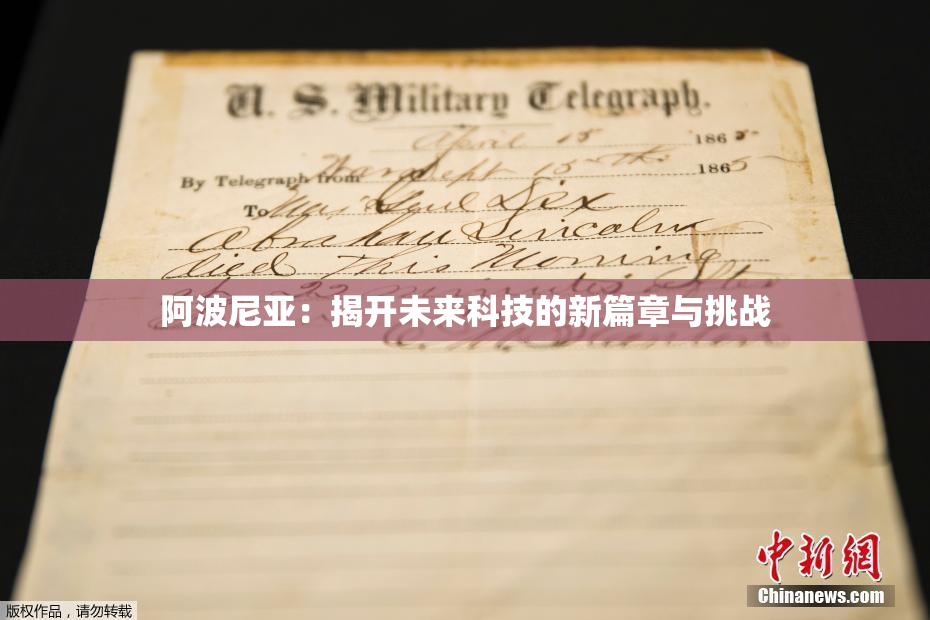 U. S. Military Telegraph.
April 15 1865
By Telegraph from War Dept 15th 1865
To Maj Genl Dix
Abraham Lincoln
died This Morning
at 22 minutes after
阿波尼亚：揭开未来科技的新篇章与挑战
E. M. Stanton
中新网
Chinanews.com
版权作品，请勿转载